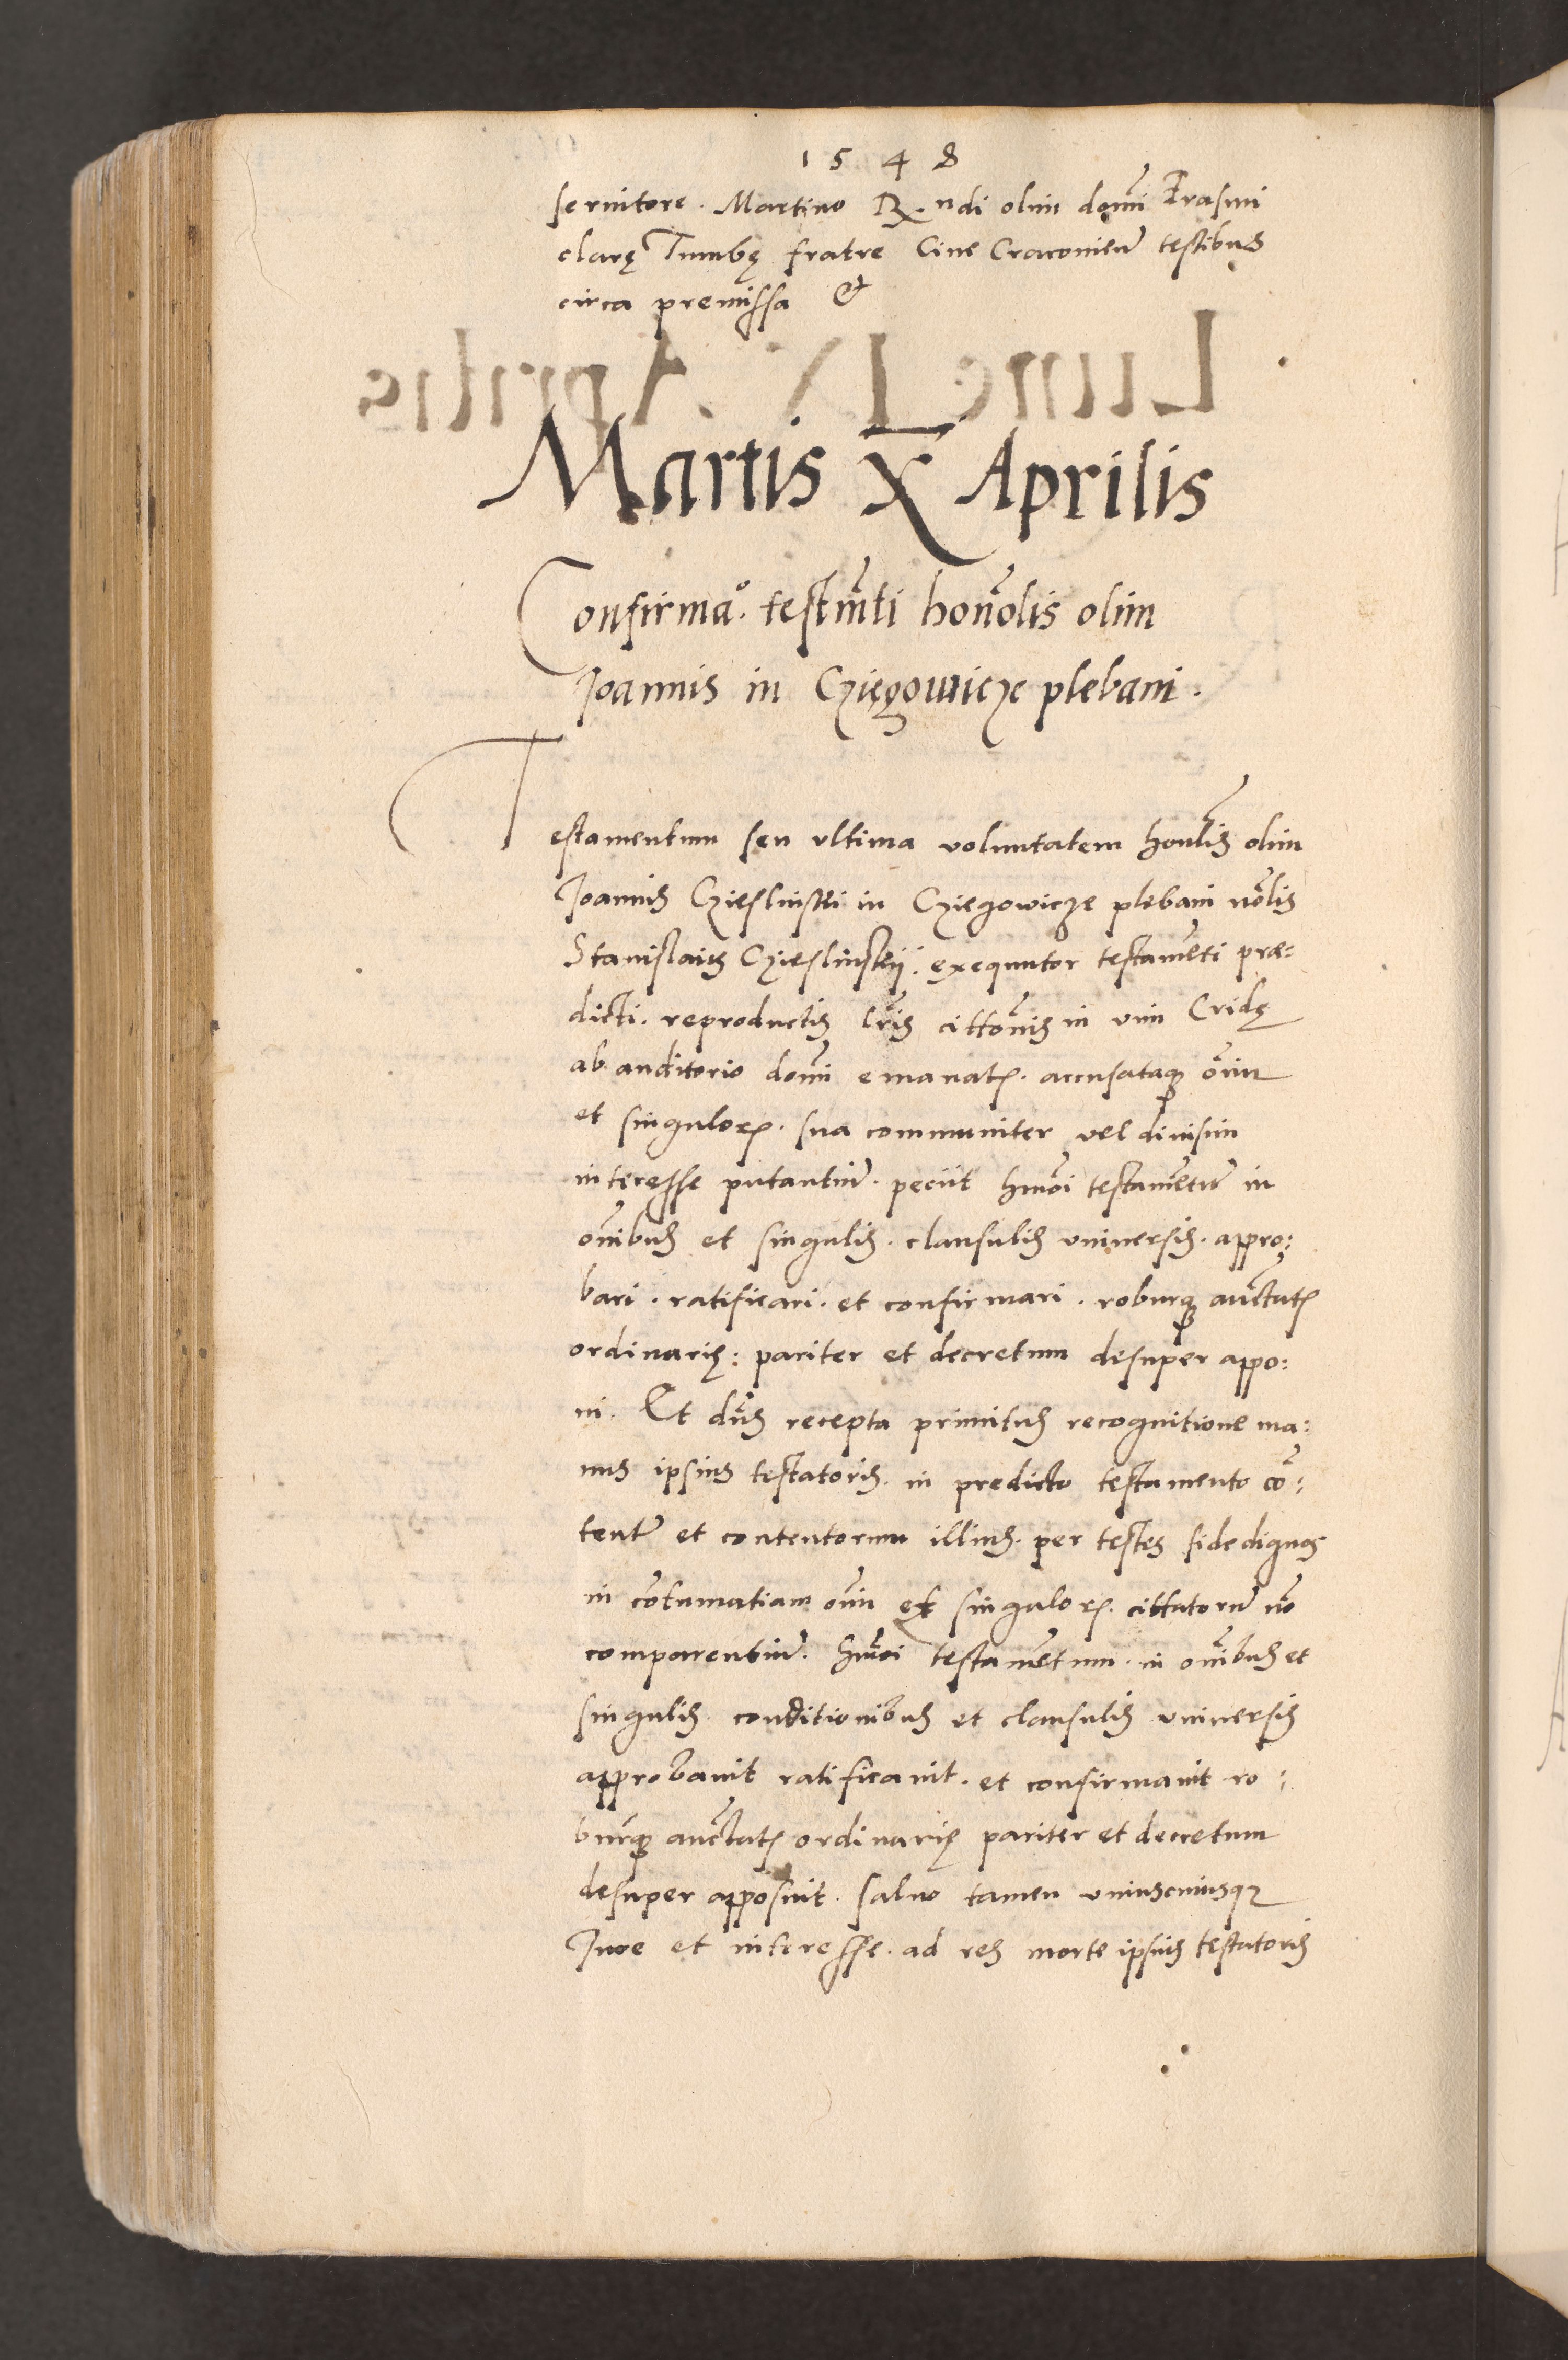 1548
seruitore. Martino Rndi olim domī Erasmi
clarę Tumbę fratre Ciue Cracouien̄ testibus
circa premissa &
Martis X Aprilis
Confirmaº. testm̄ti honōlis olim
Joannis in Czięgowicze plebani.
Testamentum seu vltima voluntatem honl̄is olim
Joannis Czieslinski in Cziegowicze plebani nōlis
Stanislaus Czieslinskij. exequutor testamēti præ:
dicti. reproductis lr̄is cittōnis in vim Cridę
ab auditorio domī emanatꝭ. accusataqꝫ om̄iu
et singuloꝝ. sua communiter vel diuisim
interesse putantiū. peciit hmōi testamētū in
om̄ibus et singulis. clausulis vniuersis. appro:
bari. ratificari. et confirmari. roburqꝫ auctātꝭ
ordinarię: pariter et decretum desuper appo:
ni. Et dn̄s recepta primitus recognitione ma:
nus ipsius testatoris. in predicto testamento cō:
tentꝭ et contentorum illius. per testes fidedignos
in cōtumatiam om̄iu et singuloꝝ. cittatorū nō
comparentiū. hmōi testamētum. in om̄ibus et
singulis conditionibus et clausulis vniuersis
approbauit ratificauit. et confirmauit ro:
burqꝫ auctātꝭ ordinarię pariter et decretum
desuper apposuit. saluo tamen vniuscuiusqꝫ
Jure et interesse. ad res morte ipsius testatoris